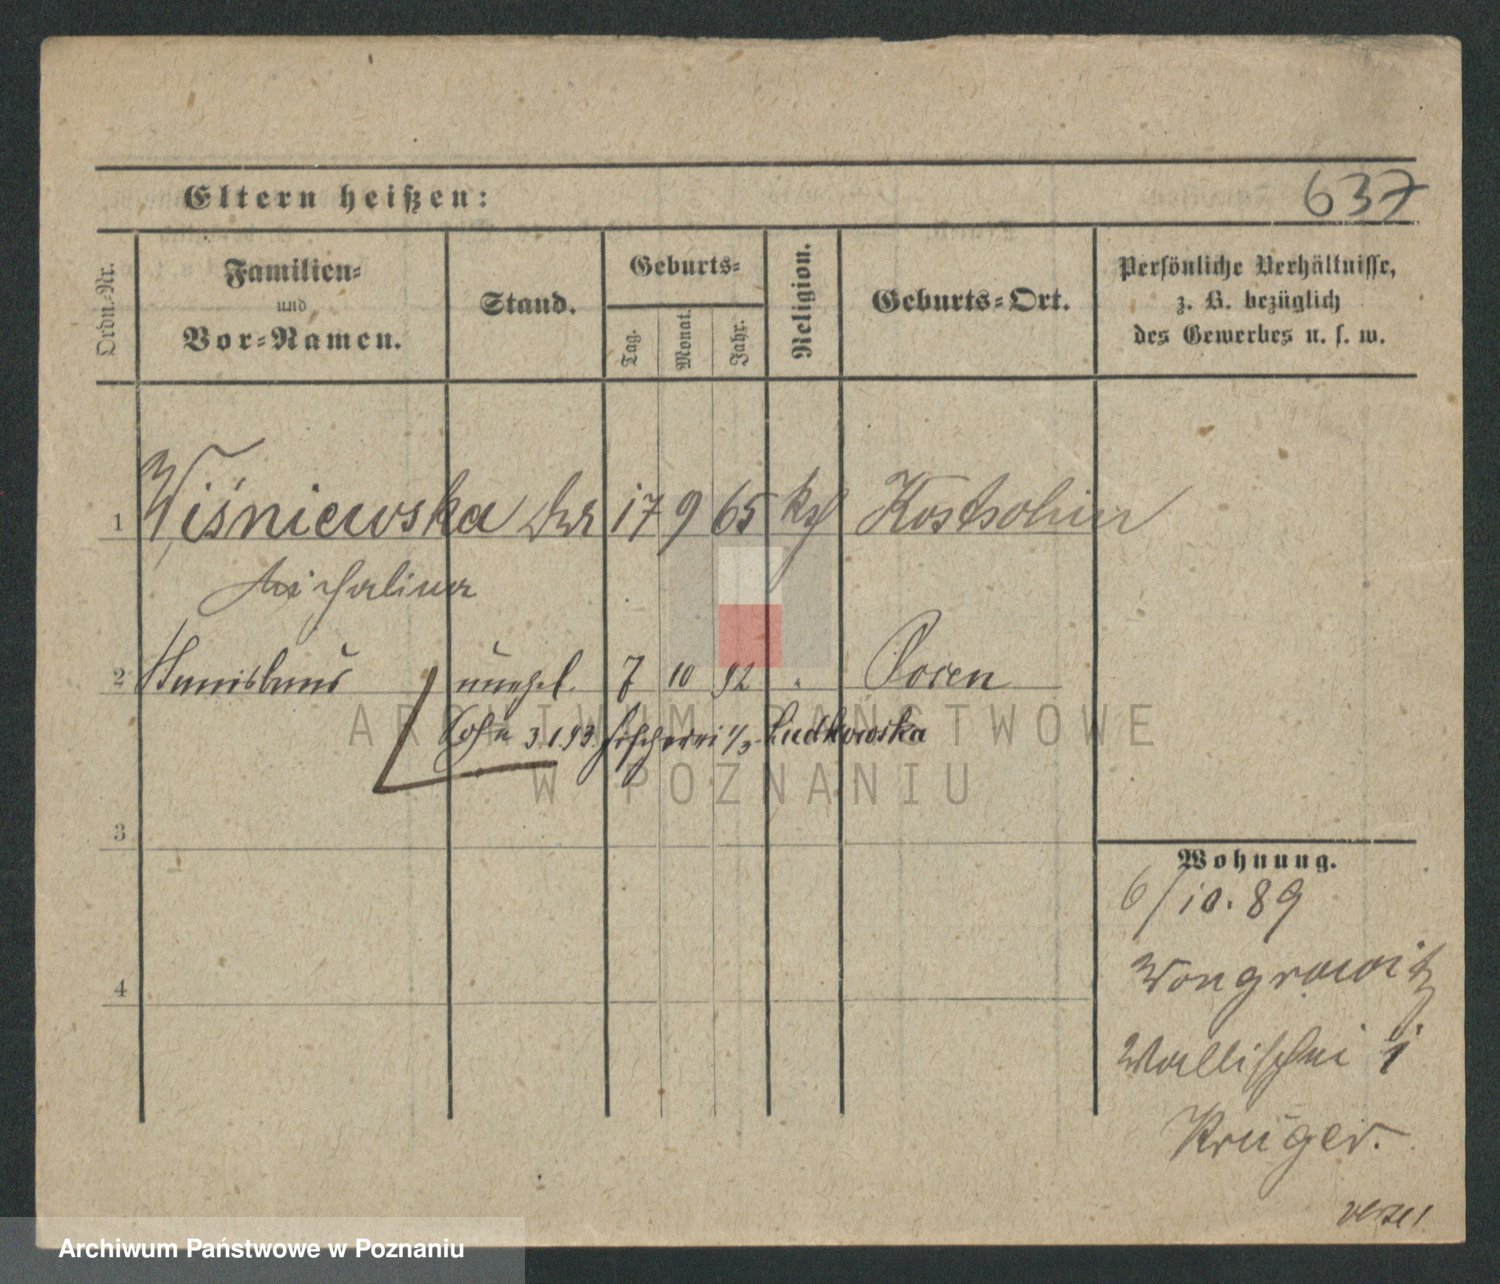 Eltern heißen:
637
Ordn.-Nr.
Familien-
und
Vor-Namen.
Stand.
Geburts-
Tag.
Monat.
Jahr.
Religion.
Geburts-Ort.
Persönliche Verhältnisse,
z. B. bezüglich
des Gewerbes u. s. w.
1 Wiśniewska 17 9 65 kth
Michalina
2 Stanislaus unehel. 7 10 92 Posen
Sohn 3.1.93. Fischerei 1/3 Ludkowska
ARCHIWUM PAŃSTWOWE
W POZNANIU
3
Wohnung.
6/10. 89
4
Wongrowitz
Wallischei 1
Krüger.
Archiwum Państwowe w Poznaniu